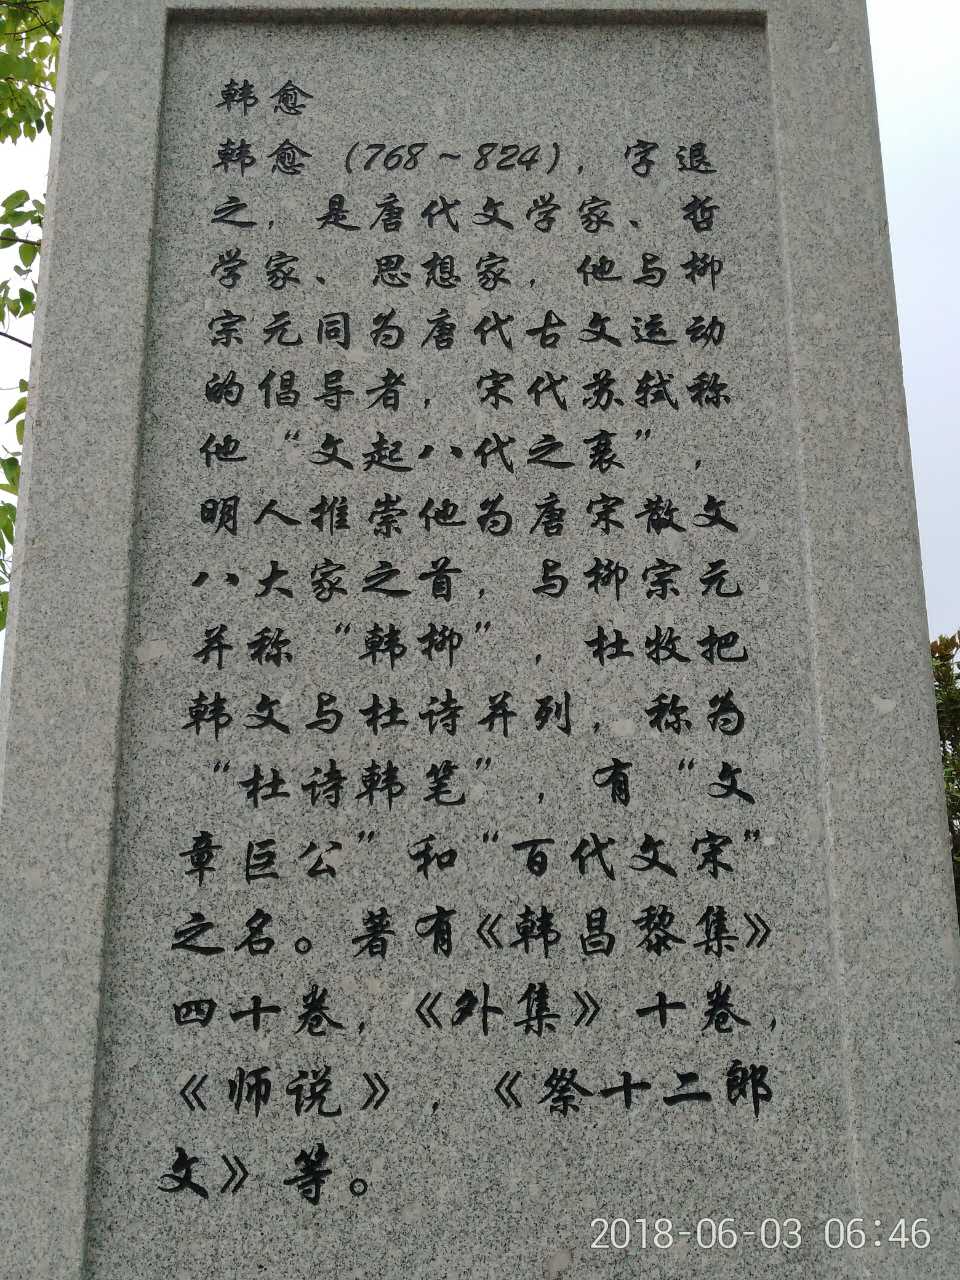 韩愈
韩愈（768~824），字退
之，是唐代文学家、哲
学家、思想家，他与柳
宗元同为唐代古文运动
的倡导者，宋代苏轼称
他“文起八代之衰”，
明人推崇他为唐宋散文
八大家之首，与柳宗元
并称“韩柳”，杜牧把
韩文与杜诗并列，称为
“杜诗韩笔”，有“文
章巨公”和“百代文宋”
之名。著有《韩昌黎集》
四十卷，《外集》十卷，
《师说》，《祭十二郎
文》等。
2018-06-03 06:46